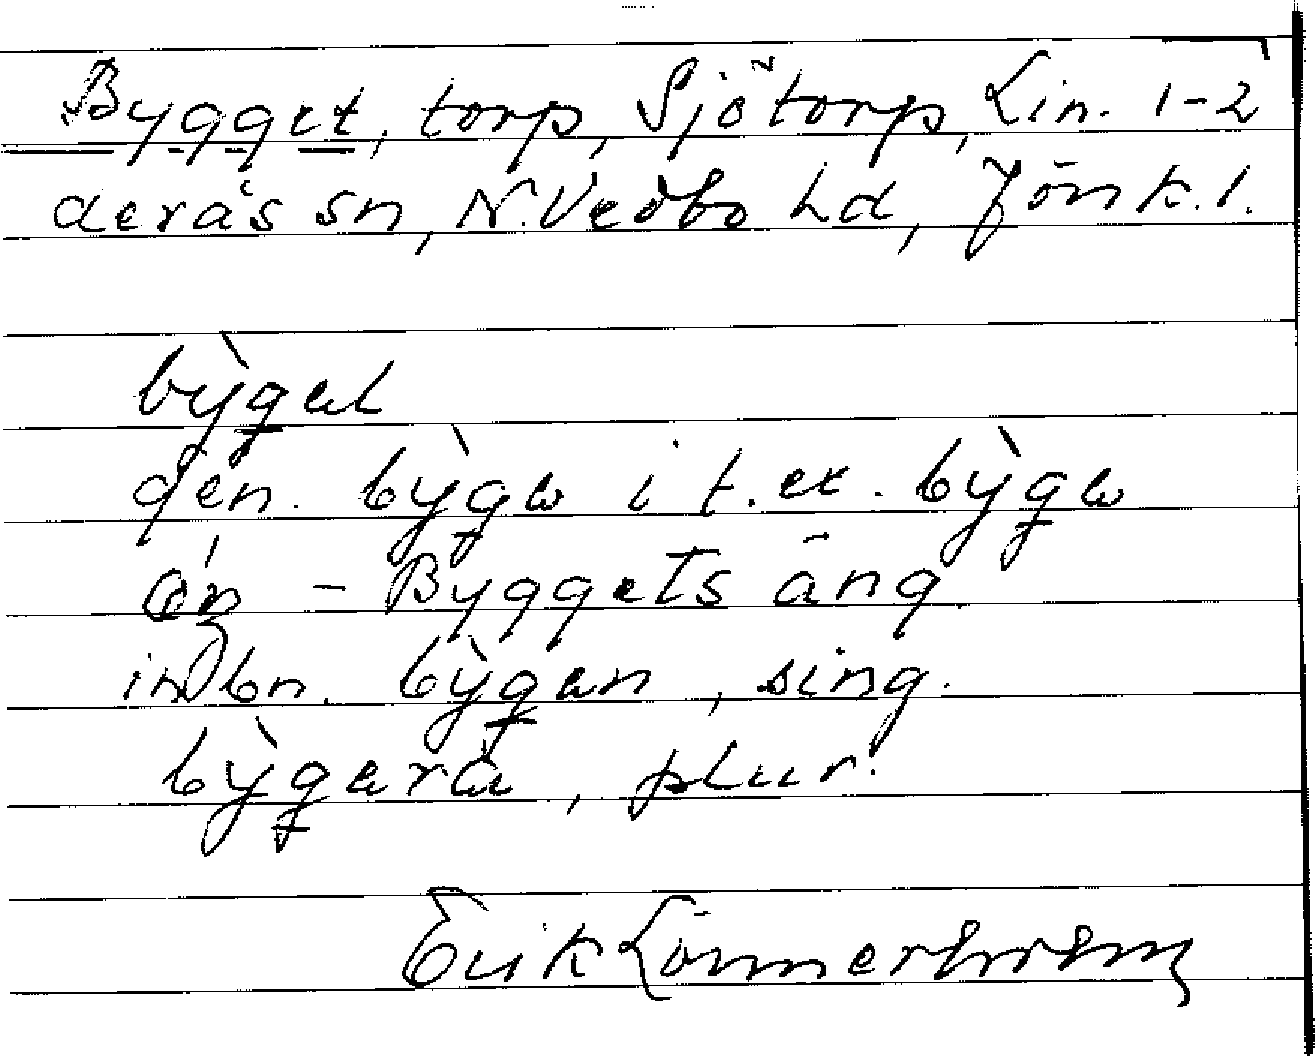 Bygget, torp, Sjötorp, Lin. 1-2
derås sn, N. Vedbo hd, Jönk. l.
bỳgət
gen. bỳgə i t. ex. bỳgə
– Byggets äng
inbbn. bỳgən, sing.
bỳgara, plur.
Erik Lönnerholm